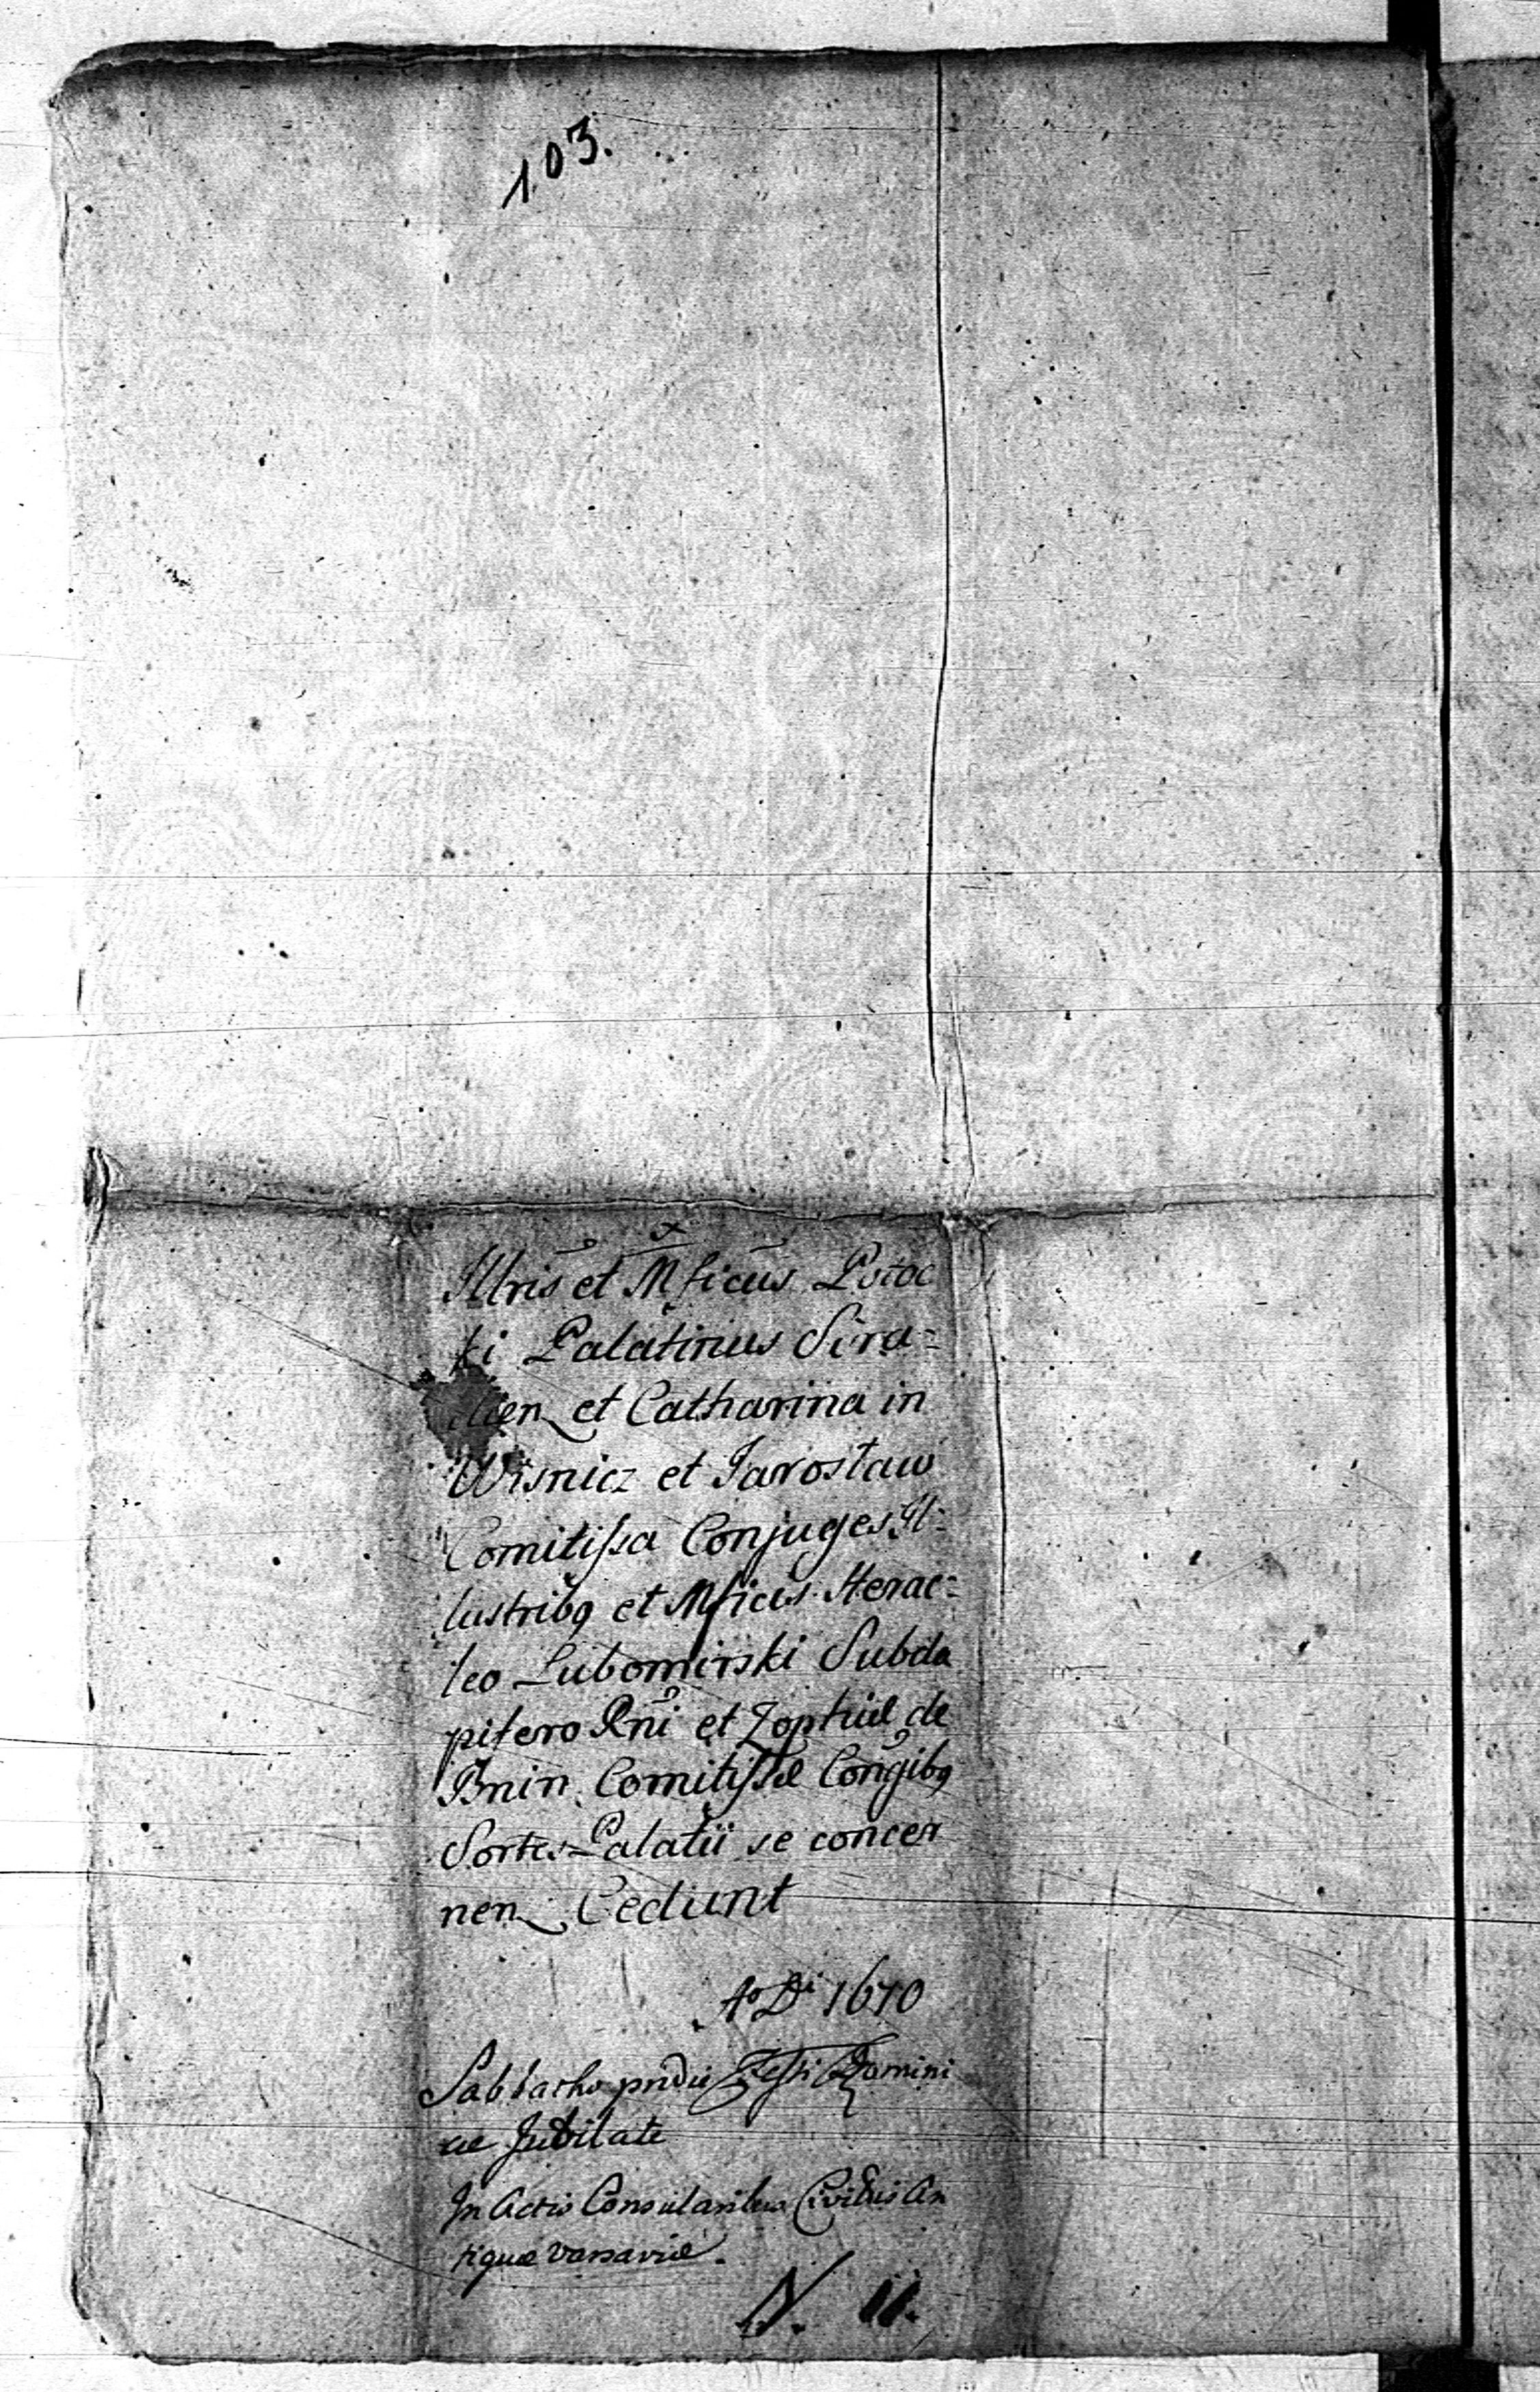 103.
Illris et Mficus Potoc
ki Palatinus Sira=
dien et Catharina in
Wisnicz et Jarosław
Comitissa Conjuges Il=
lustribq et Mficis Herac=
leo Lubomirski Subda
pifero Rni et Zophiæ de
Bnin Comitissæ Congibq
Sortes Palatii se concer
nen Cedunt
Ao Di 1670
Sabbatho pridie Festi Domini
cæ Jubilate
In Actis Consularibus Civitis An
tiquæ Varsaviæ.
N. 11.